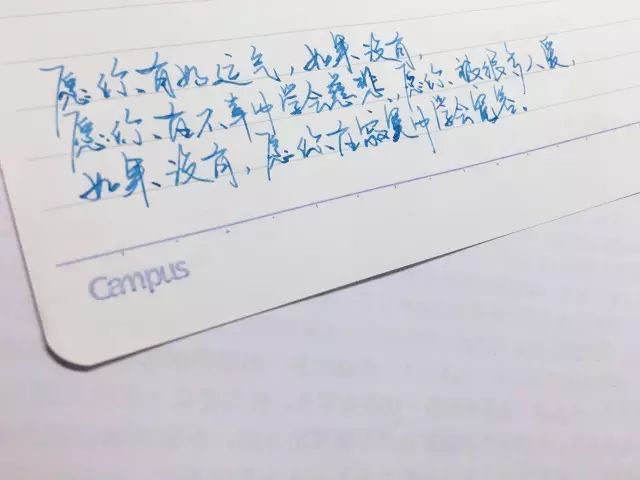 愿你有好运气，如果没有，
愿你在不幸中学会慈悲、愿你被很多人爱，
如果没有，愿你在寂寞中学会宽容。
Campus